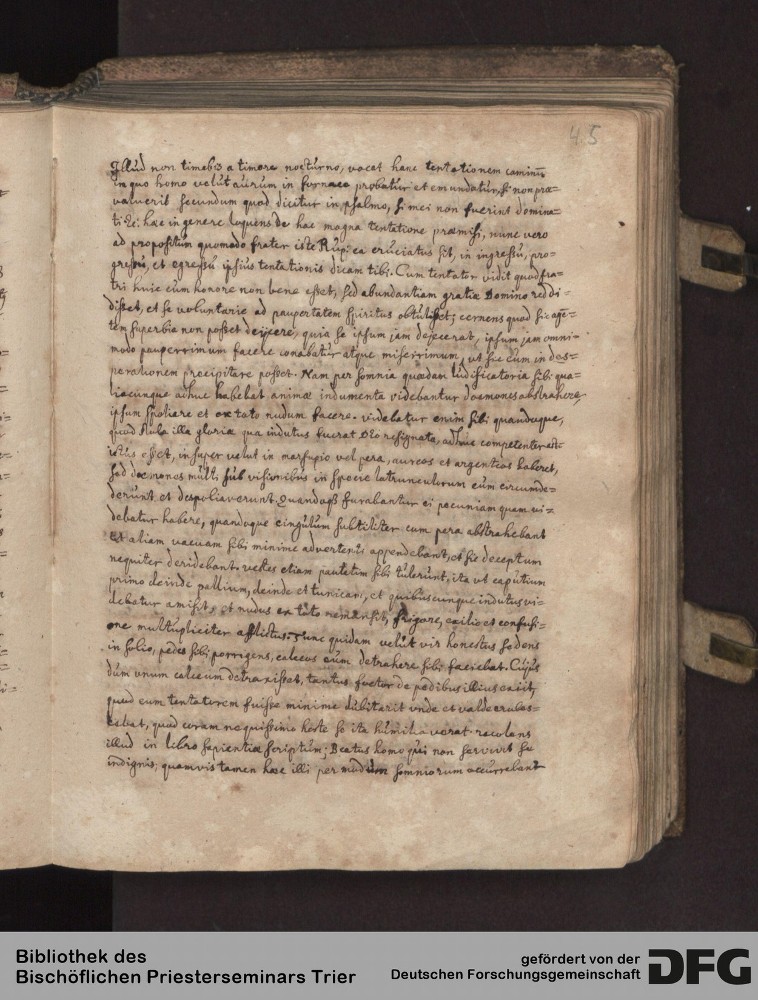 45
Illud non timebis a timore nocturno, vocat hanc tentationem caminū
in quo homo velut aurum in fornace probatur et emundatur, si non præ=
valuerit secundum quod dicitur in psalmo, si mei non fuerint domina=
ti &c: hæc in genere loquens de hac magna tentatione præmisi, nunc vero
ad propositum quomodo frater iste Rupi ea cruciatus sit, in ingressu, pro=
gressu, et egressu ipsius tentationis dicam tibi. Cum tentator vidit quod fra=
tri huic cum honore non bene esset, sed abundantiam gratiæ Domino reddi=
disset, et se voluntarie ad paupertatem spiritus obtulisset; cernens quod sic
tem superbia non posset deijcere, quia se ipsum jam dejecerat, ipsum jam omni=
modo pauperrimum facere conabatur atque miserrimum, ut sic eum in des=
perationem præcipitare posset. Nam per somnia quædam ludificatoria sibi qua=
liacunque adhuc habebat animæ indumenta videbantur dæmones abstrahere
ipsum spoliare et ex toto nudum facere. videbatur enim sibi quandoque,
quod stola illa gloriæ qua indutus fuerat Deo resignata, adhuc competenter
esset, insuper velut in marsupio vel pera, aureos et argenteos haberet,
sed dæmones multi sub visionibus in specie latrunculorum eum circumde=
derunt et despoliaverunt. quandoq3 furabantur ei pecuniam quam vi=
debatur habere, quandoque cingulum subtiliter cum pera abstrahebant
Et aliam vacuam sibi minime advertenti appendebant, et sic deceptum
nequiter deridebant. vestes etiam paulatim sibi tulerunt, ita ut caputium
primo deinde pallium, deinde et tunicam, et quibuscunque indutus vi=
debatur amisit, et nudus ex toto remansit, frigore, exilio et confusi=
one multupliciter afflictus. Tunc quidam velut vir honestus sedens
in solio, pedes sibi porrigens, calceos eum detrahere sibi faciebat. Cujus
dum unum calceum detraxisset, tantus fœtor de pedibus illius exiit,
quod eum tentatorem fuisse minime dubitarit unde et valde erubes=
cebat, quod coram nequissimo hoste se ita humiliaverat recolens
illud in libro sapientiæ scriptum; Beatus homo qui non servivit se
indignis; quamvis tamen hæc illi per modum somniorum occurrebant
Bibliothek des
Bischöflichen Priesterseminars Trier
gefördert von der
Deutschen Forschungsgemeinschaft
DFG